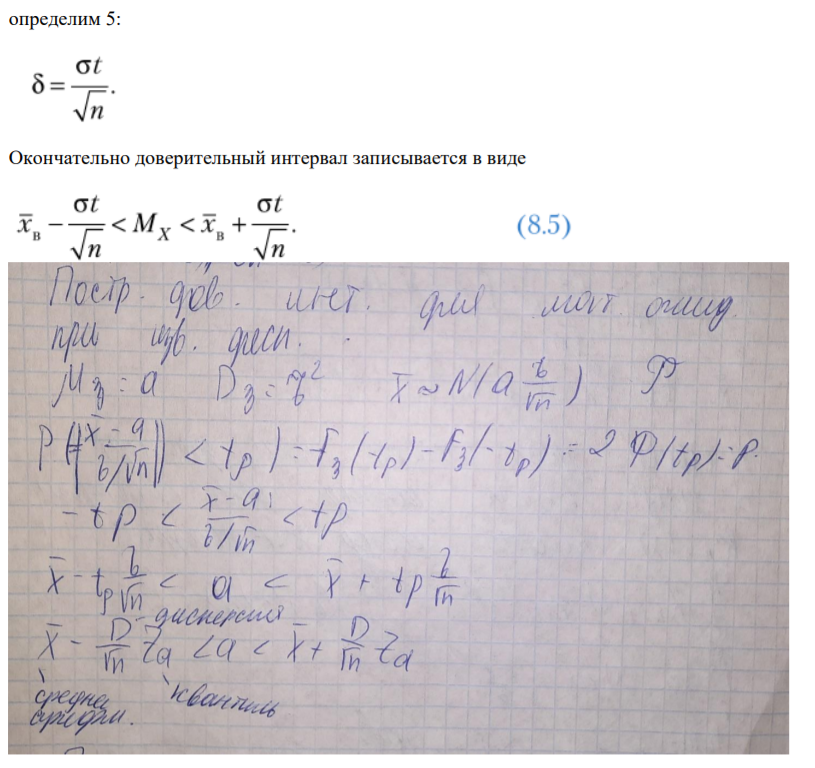 определим 5:
δ = σt/√n.
Окончательно доверительный интервал записывается в виде
x̄в − σt/√n < M_X < x̄в + σt/√n. (8.5)
Постр. дов. инт. для мат. ожид.
при изв. дисп.
Mξ = a Dξ = σ² x̄ ~ N(a σ/√n) P
P(|x̄ − a / σ/√n| < tp) = Fξ(tp) − Fξ(−tp) = 2 Ф(tp) = P.
− tp < x̄ − a / σ/√n < tp
x̄ − tp σ/√n < a < x̄ + tp σ/√n
дисперсия
x̄ − D/√n Zα < a < x̄ + D/√n Zα
средне квантиль
арифм.